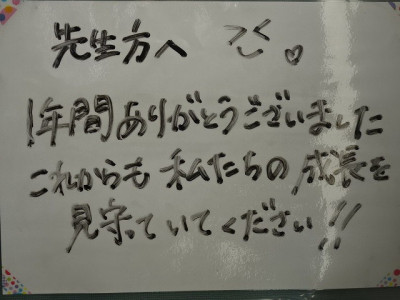 先生方へ
1年間ありがとうございました
これからも私たちの成長を
見守っていてください!!